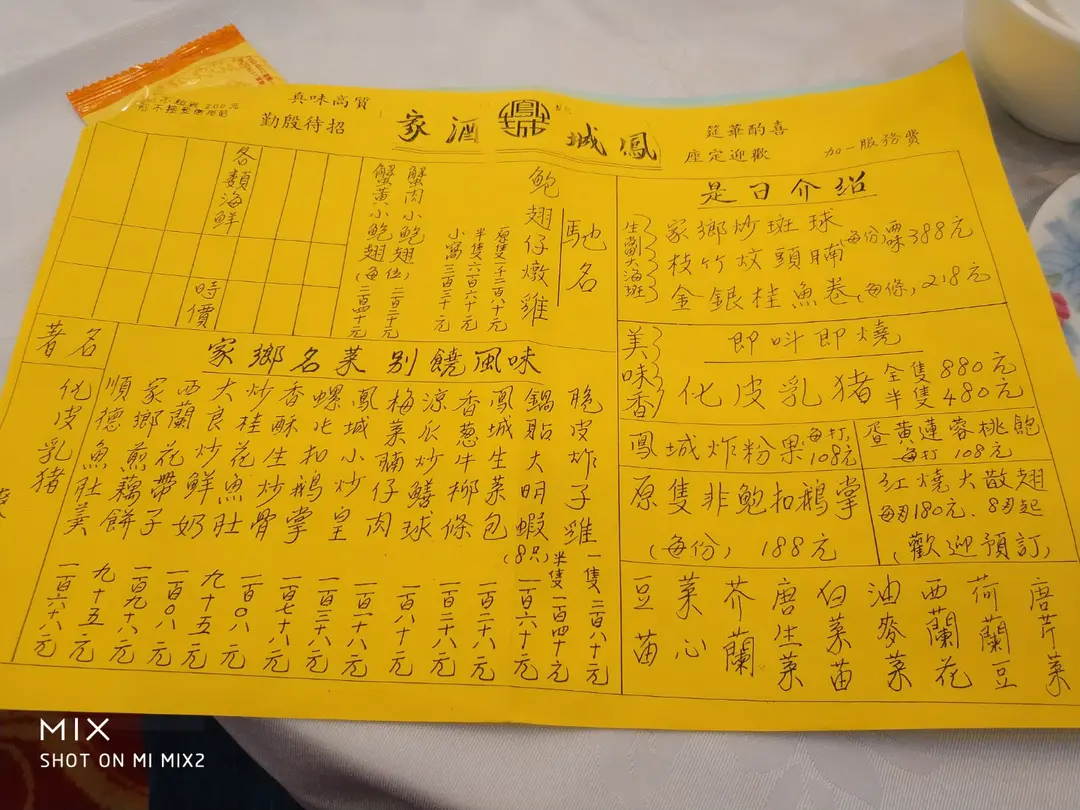 喜酌華筵
歡迎定座
加一服務費
鳳城酒家
鳳城
質高味真
招待殷勤
是日介紹
生劏大海斑
家鄉炒斑球
枝竹炆頭腩
每份兩味388元
金銀桂魚卷(每條)218元
美味香
即叫即燒
化皮乳猪
全隻880元
半隻480元
鳳城炸粉果 每打108元
蛋黃蓮蓉桃飽
每打108元
原隻非鮑扣鵝掌
(每份) 188元
紅燒大散翅
每両180元.8両起
(歡迎預訂)
唐芹菜
荷蘭豆
西蘭花
油麥菜
白菜苗
唐生菜
芥蘭
菜心
豆苗
馳名
鮑翅仔燉雞
原隻一千二百八十元
半隻六百六十元
小窩三百三十元
蟹肉小鮑翅
蟹黃小鮑翅
(每位)二百二十元
(每位)二百四十元
各類海鮮
時價
家鄉名菜別饒風味
脆皮炸子雞 一隻二百八十元
半隻一百四十元
鍋貼大明蝦(8只) 一百六十元
鳳城生菜包 一百二十八元
香葱牛柳條 一百一十八元
涼瓜炒鱔球
梅菜腩仔肉
鳳城小炒皇
螺片扣鵝掌 一百三十八元
香酥生炒骨 一百七十八元
炒桂花魚肚 一百0八元
大良炒鮮奶 九十五元
西蘭花帶子 一百0八元
家鄉煎藕餅 一百九十八元
順德魚肚羹 九十五元
著名
化皮乳猪 一百六十八元
MIX
SHOT ON MI MIX2